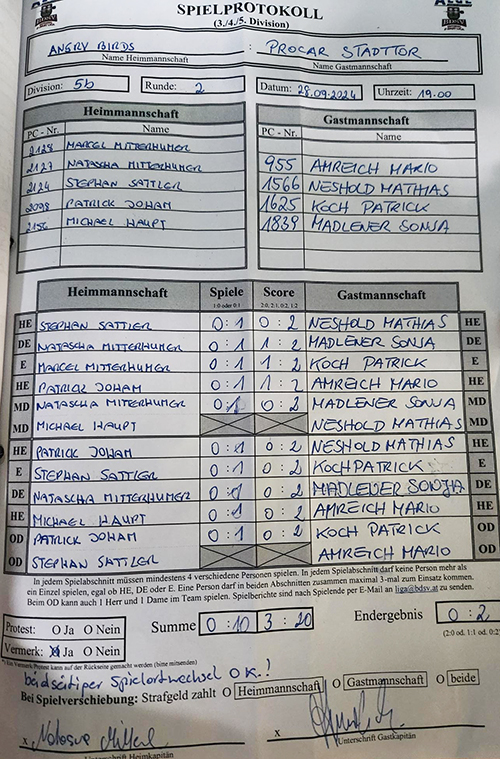 SPIELPROTOKOLL
(3./4./5. Division)
ANGRY BIRDS : PROCAR STADTTOR
Name Heimmannschaft Name Gastmannschaft
Division: 5b Runde: 2 Datum: 28.09.2024 Uhrzeit: 19.00
Heimmannschaft Gastmannschaft
PC - Nr. Name PC - Nr. Name
2128 MARCEL MITTERHUMER
2127 NATASCHA MITTERHUMER 955 AMREICH MARIO
2124 STEPHAN SATTLER 1566 NESHOLD MATHIAS
2098 PATRICK JOHAM 1625 KOCH PATRICK
2156 MICHAEL HAUPT 1839 MADLENER SONJA
Heimmannschaft Spiele Score Gastmannschaft
1:0 oder 0:1 2:0, 2:1, 0:2, 1:2
HE STEPHAN SATTLER 0:1 0:2 NESHOLD MATHIAS HE
DE NATASCHA MITTERHUMER 0:1 1:2 MADLENER SONJA DE
E MARCEL MITTERHUMER 0:1 1:2 KOCH PATRICK E
HE PATRICK JOHAM 0:1 1:2 AMREICH MARIO HE
MD NATASCHA MITTERHUMER 0:1 0:2 MADLENER SONJA MD
MD MICHAEL HAUPT NESHOLD MATHIAS MD
HE PATRICK JOHAM 0:1 0:2 NESHOLD MATHIAS HE
E STEPHAN SATTLER 0:1 0:2 KOCH PATRICK E
DE NATASCHA MITTERHUMER 0:1 0:2 MADLENER SONJA DE
HE MICHAEL HAUPT 0:1 0:2 AMREICH MARIO HE
OD PATRICK JOHAM 0:1 0:2 KOCH PATRICK OD
OD STEPHAN SATTLER AMREICH MARIO OD
In jedem Spielabschnitt müssen mindestens 4 verschiedene Personen spielen. In jedem Spielabschnitt darf keine Person mehr als
ein Einzel spielen, egal ob HE, DE oder E. Eine Person darf in beiden Abschnitten zusammen maximal 3-mal zum Einsatz kommen.
Beim OD kann auch 1 Herr und 1 Dame im Team spielen. Spielberichte sind nach Spielende per E-Mail an liga@bdsv.at zu senden.
Protest: O Ja O Nein Summe 0:10 3:20 Endergebnis 0:2
Vermerk: Ja O Nein (2:0 od. 1:1 od. 0:2)
*) Ein Vermerk/Protest kann auf der Rückseite gemacht werden (bitte mitsenden)
beidseitiger Spielortwechsel OK.!
Bei Spielverschiebung: Strafgeld zahlt O Heimmannschaft O Gastmannschaft O beide
x x
Unterschrift Heimkapitän Unterschrift Gastkapitän